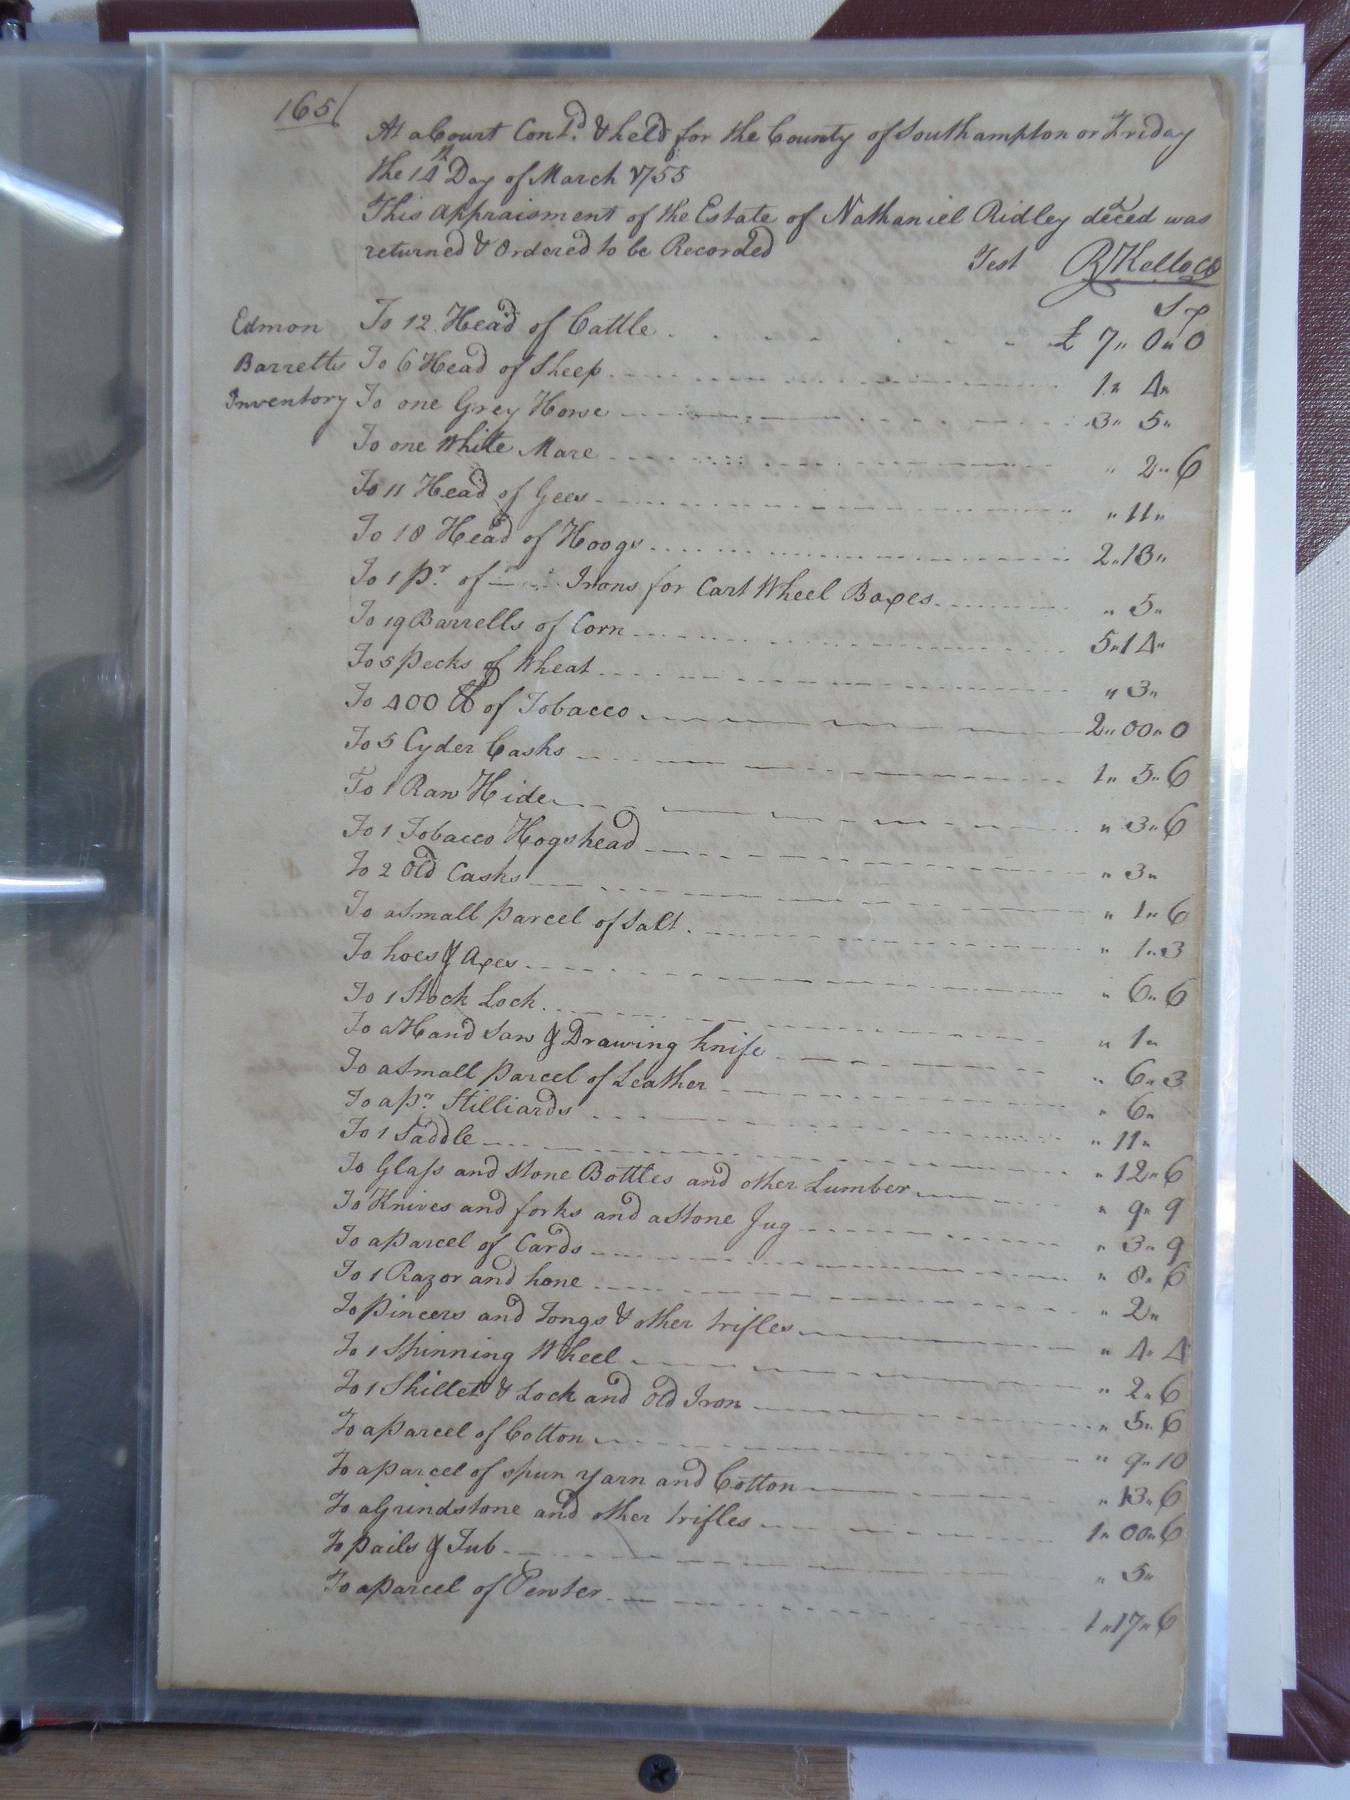 165
At a Court Contd. & held for the County of Southampton on Friday
the 14th Day of March 1755
This Appraisment of the Estate of Nathaniel Ridley deced was
returned & Ordered to be Recorded Test R Kello CS
Edmon Barretts Inventory
To 12 Head of Cattle £ 7,, 0,, 0
To 6 Head of Sheep 1,, 4,,
To one Grey Horse 3,, 5,,
To one White Mare ,, 2,, 6
To 11 Head of Gees ,, 11,,
To 18 Head of Hoogs 2,, 18,,
To 1 pr of Irons for Cart Wheel Boxes ,, 5,,
To 19 Barrells of Corn 5,, 14,,
To 5 pecks of Wheat ,, 3,,
To 400 lb of Tobacco 2,, 00,, 0
To 5 Cyder Casks 1,, 5,, 6
To 1 Raw Hide ,, 3,, 6
To 1 Tobacco Hogshead ,, 3,,
To 2 Old Casks ,, 1,, 6
To a small parcel of Salt ,, 1,, 3
To hoes & Axes ,, 6,, 6
To 1 Stock Lock ,, 1,,
To a Hand Saw & Drawing knife ,, 6,, 3
To a small parcel of Leather ,, 6,,
To a pr. Stilliards ,, 11,,
To 1 Saddle ,, 12,, 6
To Glass and Stone Bottles and other Lumber ,, 9,, 9
To Knives and forks and a Stone Jug ,, 3,, 9
To a parcel of Cards ,, 8,, 6
To 1 Razor and hone ,, 2,,
To pincers and Tongs & other trifles ,, 4,, 4
To 1 Spinning Wheel ,, 2,, 6
To 1 Skillet & Lock and old Iron ,, 5,, 6
To a parcel of Cotton ,, 9,, 10
To a parcel of spun yarn and Cotton ,, 13,, 6
To a Grindstone and other trifles 1,, 00,, 6
To pails & Tub ,, 5,,
To a parcel of Pewter 1,, 17,, 6